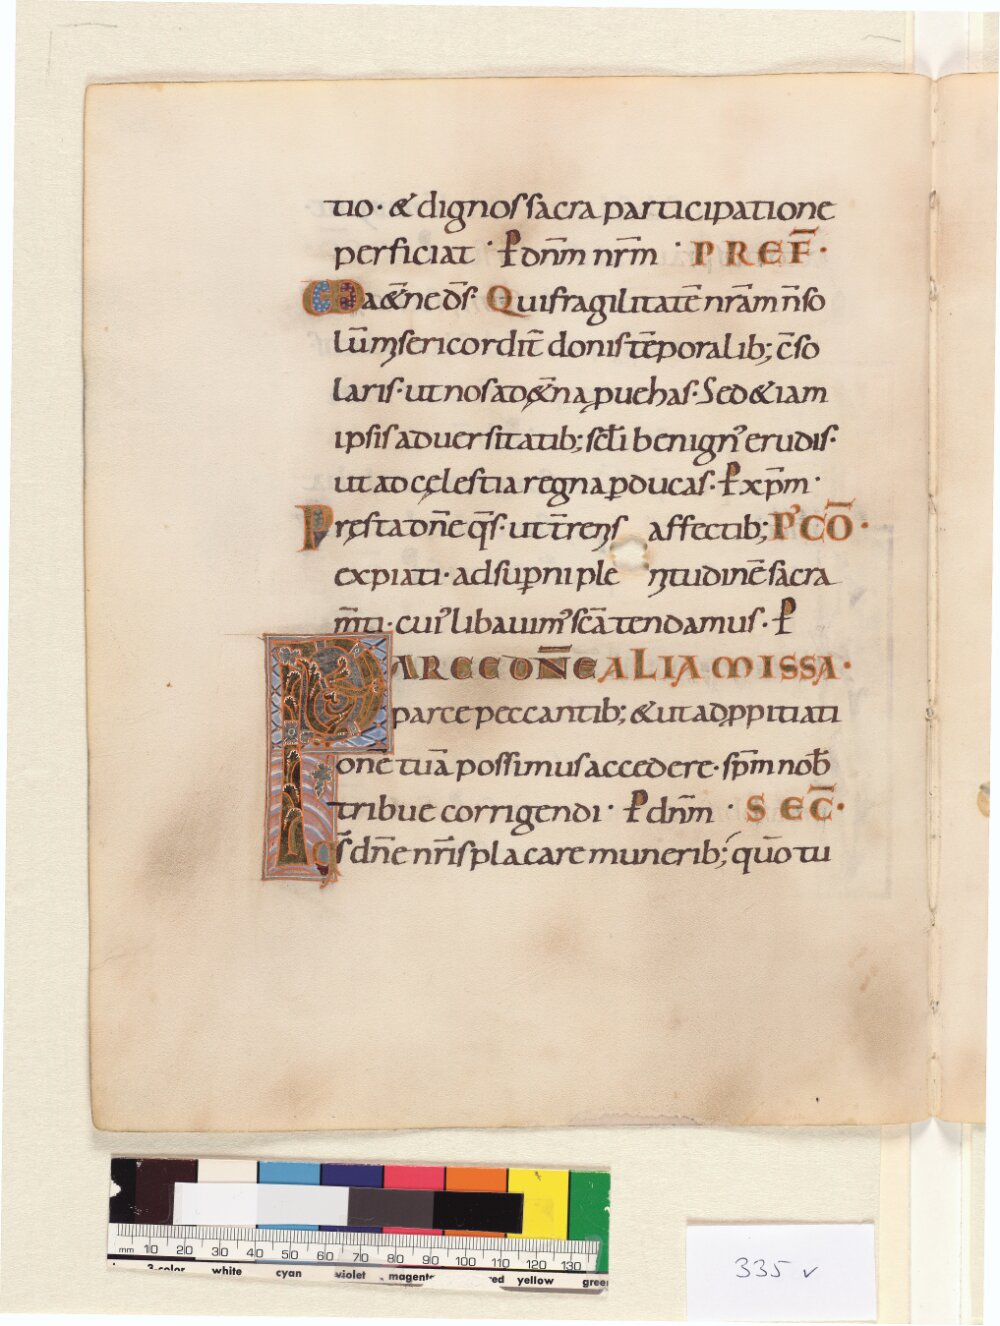 tio· & dignos sacra participatione
perficiat · P dnm̄ nr̄m · PREF̄·
UD a&̄ne ds̄· Qui fragilitatē nr̄am n̄ so
lū m̨sericordit̄ donis tēporalib; c̄so
laris· ut nos ad &̄na ꝓuehas· Sed & iam
ipsis aduersitatib; sc̄li benignꝰ erudis·
ut ad cęlestia regna ꝑducas· P xp̄m·
Pręsta dn̄e qs̄· ut t̄renis affectib; PꝰCŌ·
expiati· ad suꝑni ple nitudinē sacra
m̄ti· cuiꝰ libauimꝰ sc̄a tendamus· P
PARCE DN̄E ALIA MISSA·
parce peccantib; & ut ad ꝓpitiati
one tuā possimus accedere· sp̄m nob̄
tribue corrigendi· P dnm̄ · SEC̄·
Qs̄ dn̄e nr̄is placare munerib; quō tu
mm 10 20 30 40 50 60 70 80 90 100 110 120 130
3-color white cyan violet magenta red yellow green
335 v